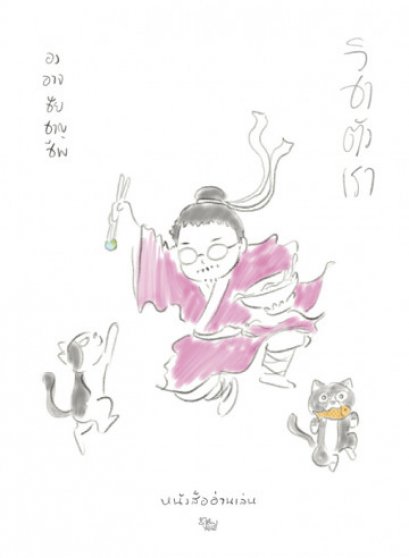 อง
อาจ
ชัย
ชาญ
ชีพ
วิ
ชา
ตัว
เรา
หนังสืออ่านเล่น